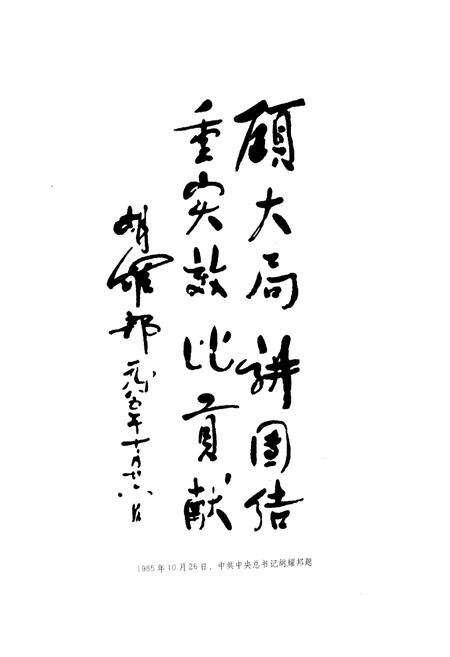 顾大局讲团结
重实效比贡献
胡耀邦
一九八五年十月廿六日
1985年10月26日，中共中央总书记胡耀邦题